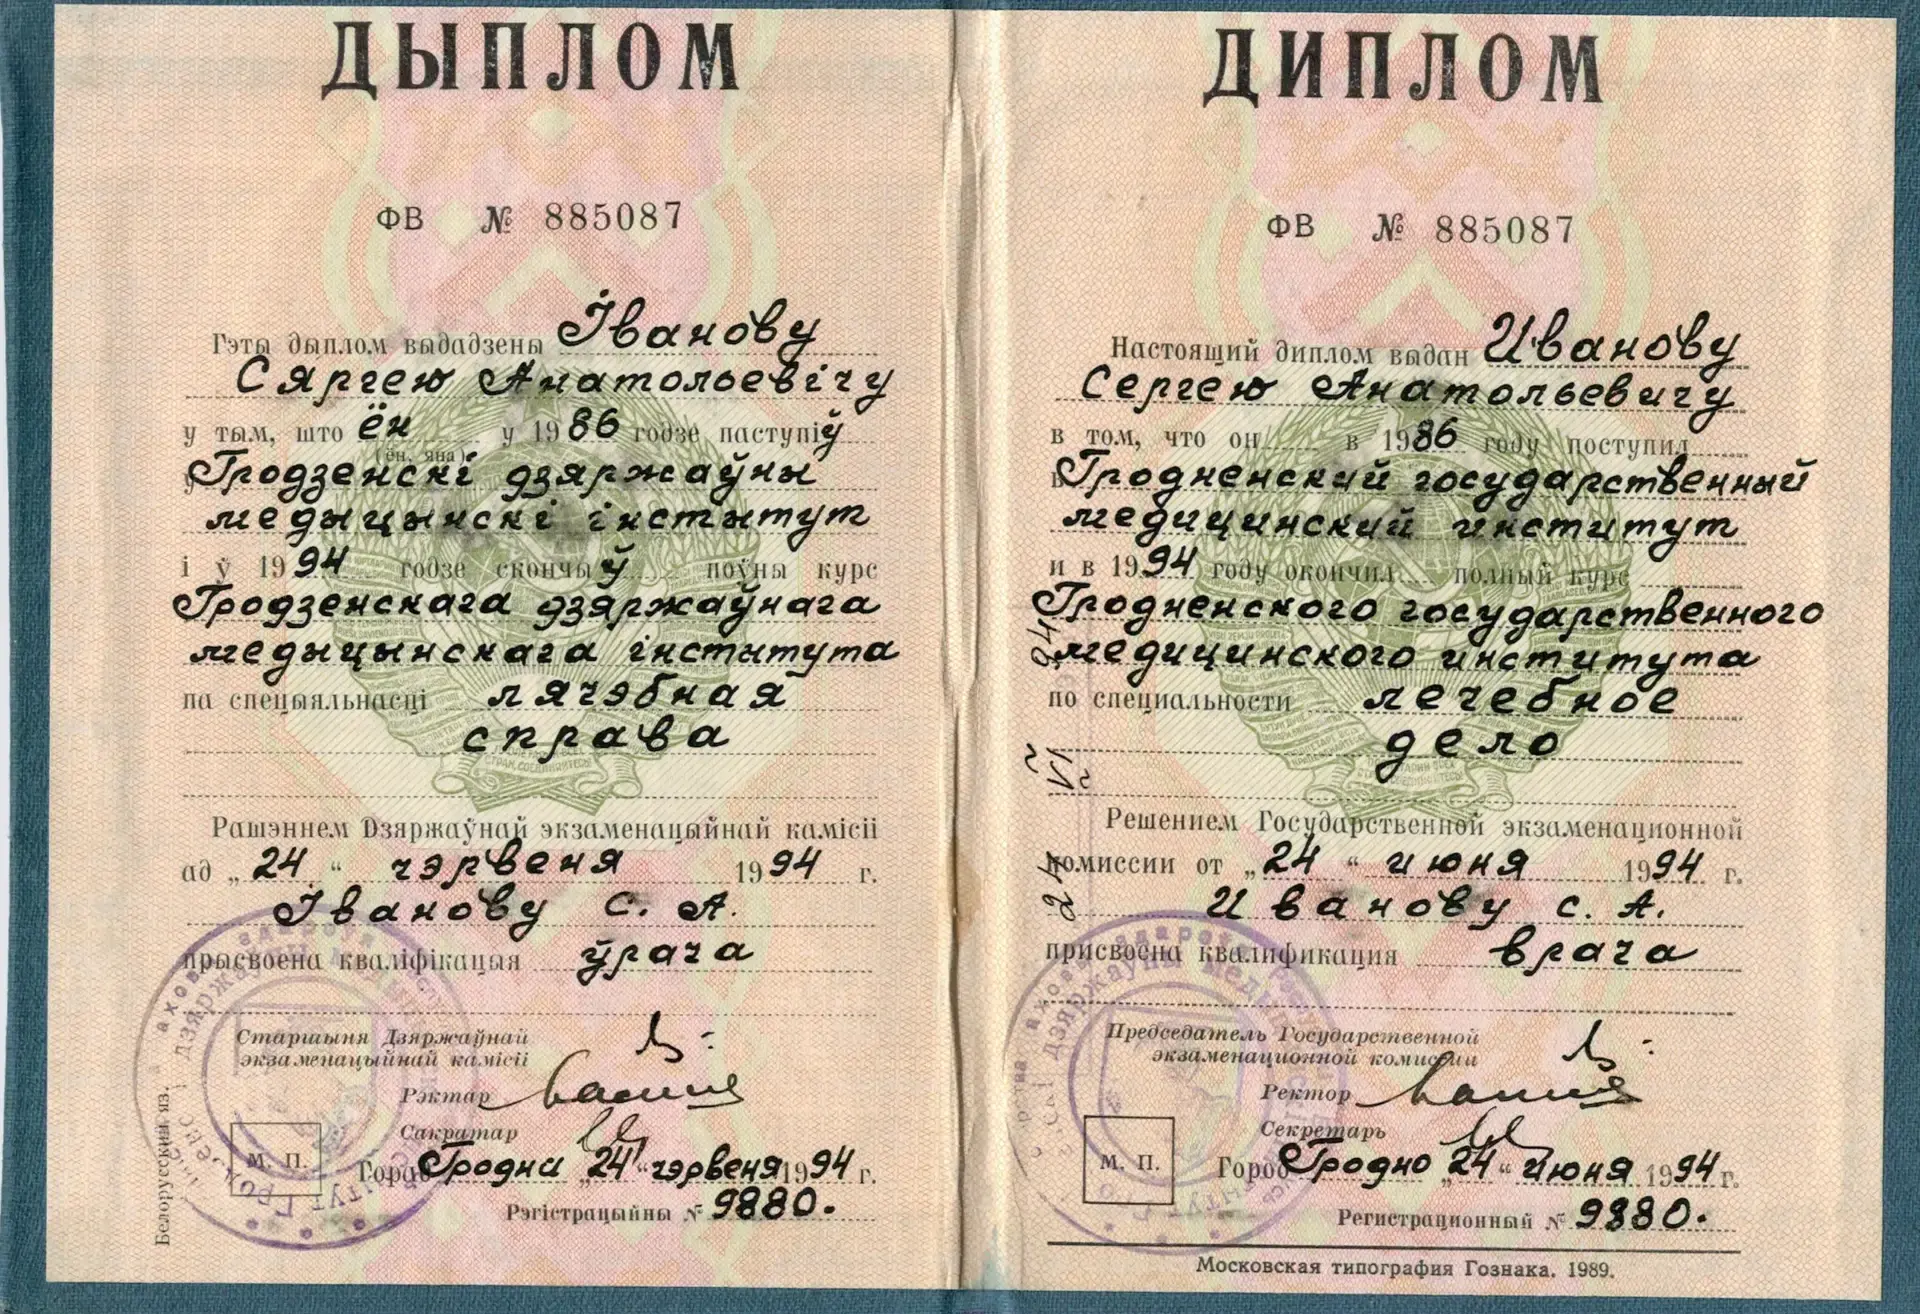 ДЫПЛОМ
ФВ № 885087
Гэты дыплом выдадзены Івано́ву
Сяргею Анатольевічу
у тым, што ён у 1986 годзе паступіў
(ён, яна)
у Гродзенскі дзяржаўны
медыцынскі інстытут
і ў 1994 годзе скончыў поўны курс
Гродзенскага дзяржаўнага
медыцынскага інстытута
па спецыяльнасці лячэбная
справа
Рашэннем Дзяржаўнай экзаменацыйнай камісіі
ад „24“ чэрвеня 1994 г.
Івано́ву С. А.
прысвоена кваліфікацыя ўрача
Старшыня Дзяржаўнай
экзаменацыйнай камісіі
Рэктар
Сакратар
М. П.
Горад Гродна „24“ чэрвеня 1994 г.
Рэгістрацыйны № 9880.
Белорусский яз.
ДИПЛОМ
ФВ № 885087
Настоящий диплом выдан Ивано́ву
Сергею Анатольевичу
в том, что он в 1986 году поступил
в Гродненский государственный
медицинский институт
и в 1994 году окончил полный курс
Гродненского государственного
медицинского института
по специальности лечебное
дело
Решением Государственной экзаменационной
комиссии от „24“ июня 1994 г.
Ивано́ву С. А.
присвоена квалификация врача
Председатель Государственной
экзаменационной комиссии
Ректор
Секретарь
М. П.
Город Гродно „24“ июня 1994 г.
Регистрационный № 9880.
Московская типография Гознака. 1989.